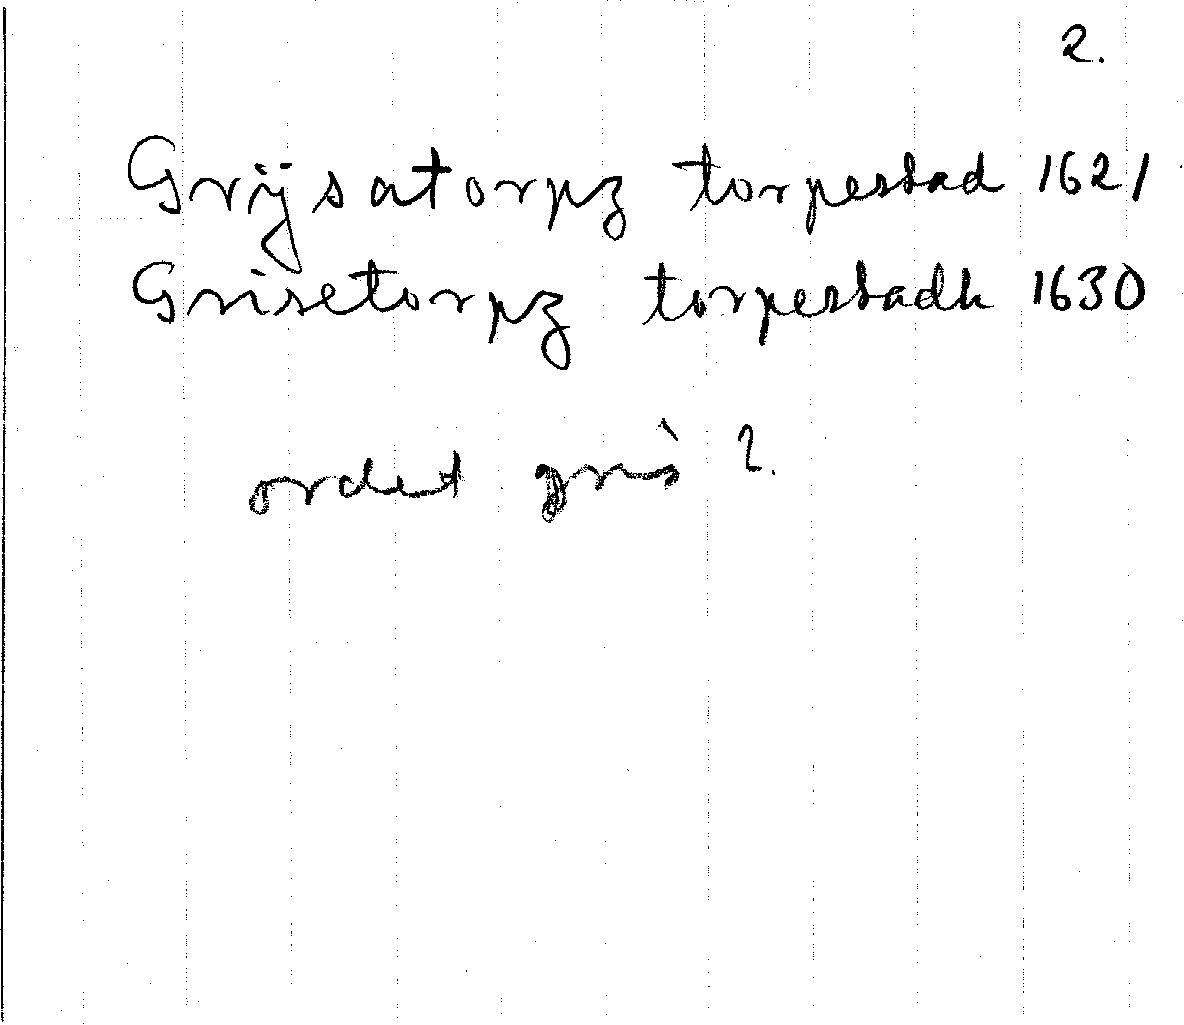 2.
Grijsatorpz torpestad 1621
Grisetorpz torpestadh 1630
ordet gris ?.